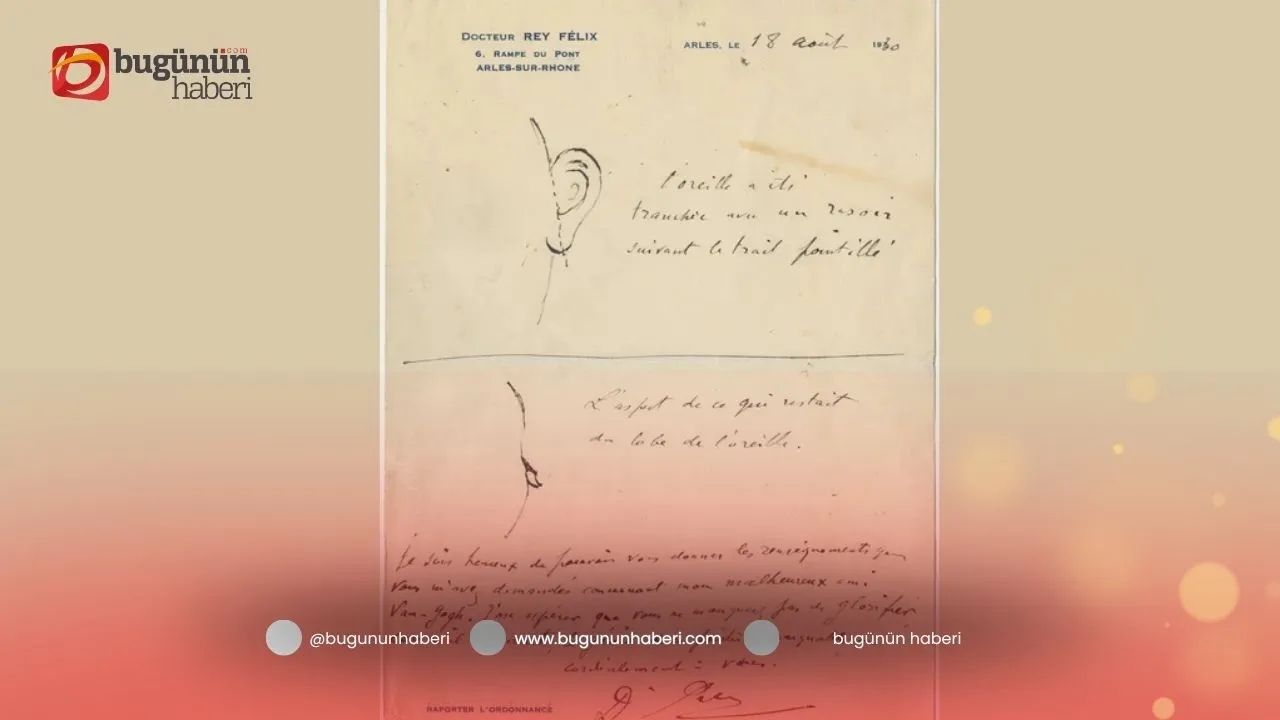 bugünün.com
haberi
DOCTEUR REY FÉLIX
6, RAMPE DU PONT
ARLES-SUR-RHONE
ARLES, LE 18 août 1930
l'oreille a été
tranchée avec un rasoir
suivant le trait pointillé
L'aspect de ce qui restait
du lobe de l'oreille.
Je suis heureux de pouvoir vous donner les renseignements que
vous m'avez demandés concernant mon malheureux ami
Van-Gogh. J'ose espérer que vous ne manquerez pas de glorifier
cordialement à vous.
Dr Rey
RAPORTER L'ORDONNANCE
@bugununhaberi www.bugununhaberi.com bugünün haberi